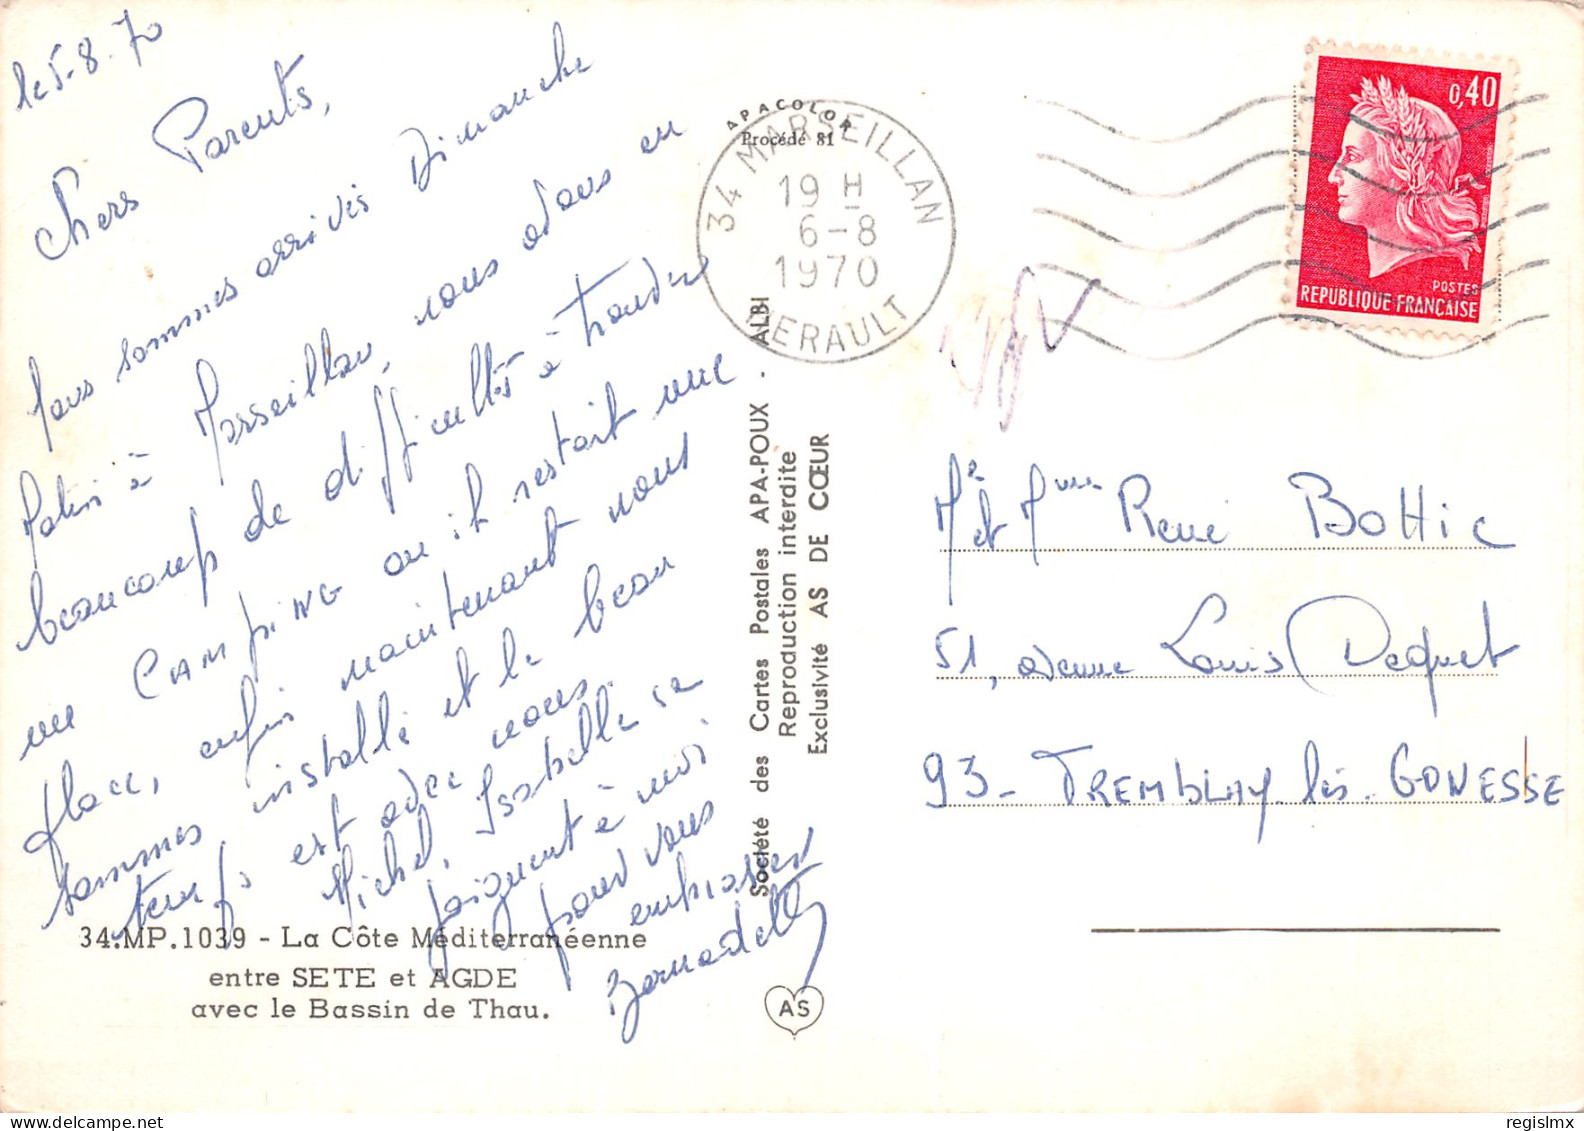 le 5-8-70
Chers Parents,
Nous sommes arrivés Dimanche
Matin à Marseillan, nous avons eu
beaucoup de difficultés à trouver
un CAMPING où il restait une
place, enfin maintenant nous
sommes installé et le beau
temps est avec nous.
Michel, Isabelle se
joignent à moi
pour vous
embrasser
Bernadette
34.MP.1039 - La Côte Méditerranéenne
entre SETE et AGDE
avec le Bassin de Thau.
APACOLOR
Procédé 81
Société des Cartes Postales APA-POUX - ALBI
Reproduction interdite
Exclusivité AS DE CŒUR
AS
34 MARSEILLAN
19 H
6-8
1970
HERAULT
0,40
POSTES
REPUBLIQUE FRANÇAISE
Mr et Mme René BOTTIC
51, avenue Louis Dequet
93 - TREMBLAY-lès-GONESSE
regislmx